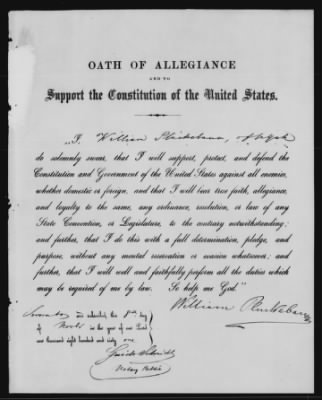 OATH OF ALLEGIANCE
AND TO
Support the Constitution of the United States.
"I, William
do solemnly swear, that I will support, protect, and defend the
Constitution and Government of the United States against all enemies,
whether domestic or foreign, and that I will bear true faith, allegiance,
and loyalty to the same, any ordinance, resolution, or law of any
State Convention, or Legislature, to the contrary notwithstanding;
and further, that I do this with a full determination, pledge, and
purpose, without any mental reservation or evasion whatsoever; and
further, that I will well and faithfully perform all the duties which
may be required of me by law. So help me God."
William
Sworn to and subscribed the day
of in the year of our Lord
one thousand eight hundred and sixty one
Notary Public